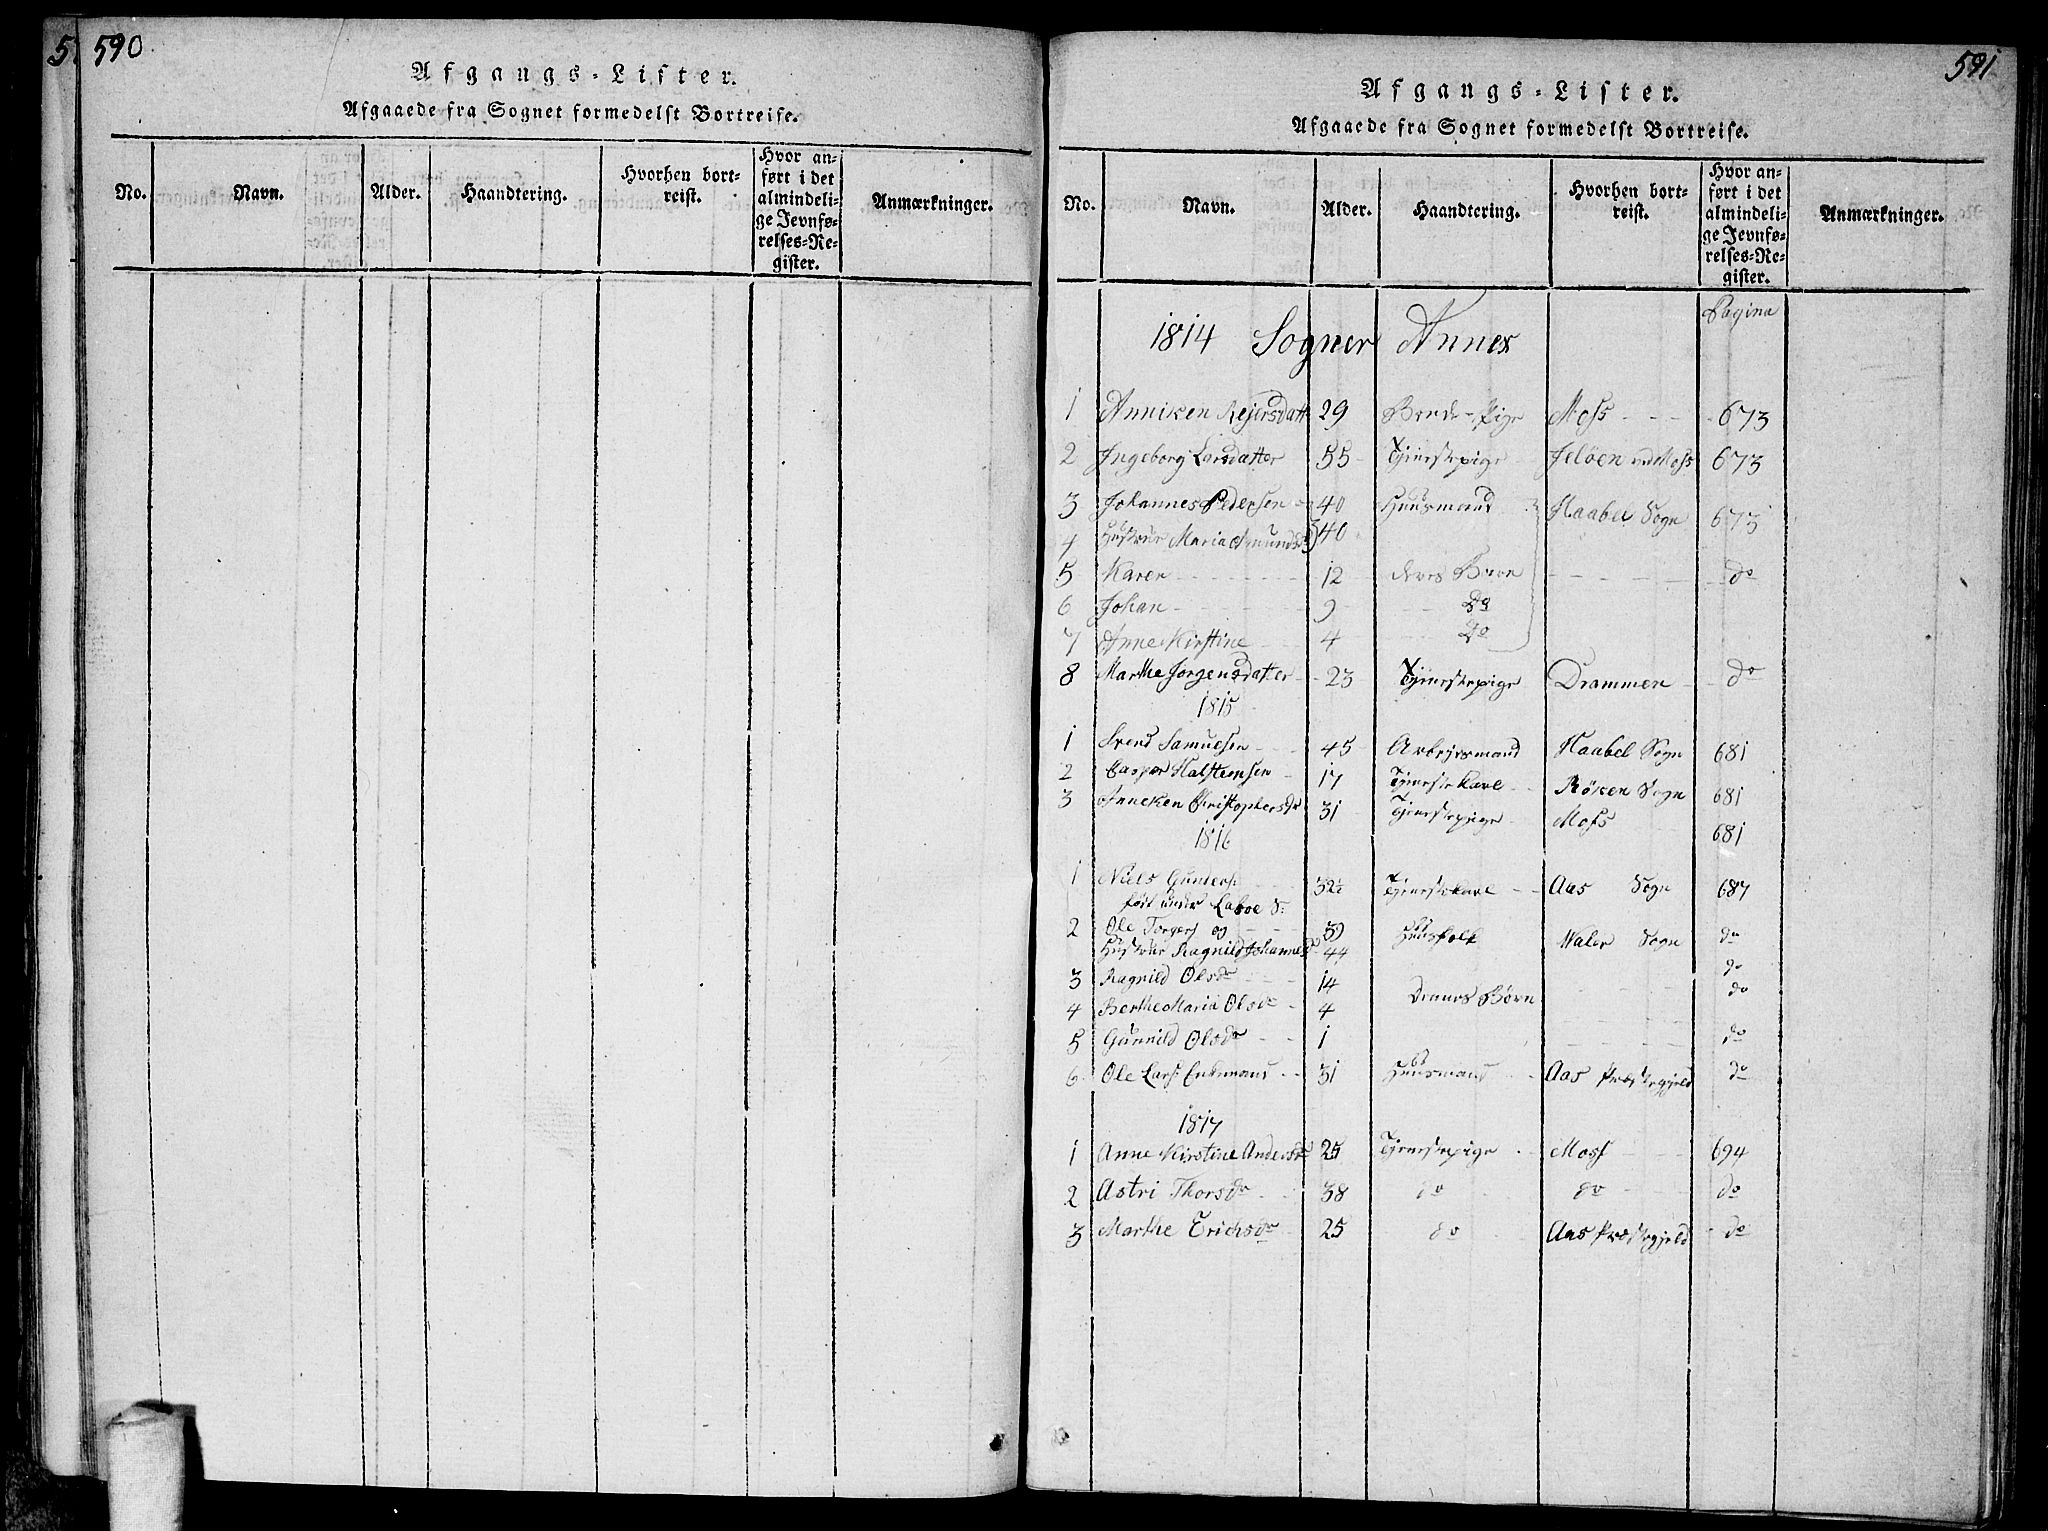 590
Afgangs-Lister.
Afgaaede fra Sognet formedelst Bortreise.
No. Navn. Alder. Haandtering. Hvorhen bortreist. Hvor anført i det almindelige Jevnførelses-Register. Anmærkninger.
591
Afgangs-Lister.
Afgaaede fra Sognet formedelst Bortreise.
No. Navn. Alder. Haandtering. Hvorhen bortreist. Hvor anført i det almindelige Jevnførelses-Register. Anmærkninger.
Pagina
1814 Sogner Annex
1 Anniken Rejersdatt 29 Pige Moss 673
2 Ingeborg Larsdatter 55 Tjenestepige Jeløen ved Moss 673
3 Johannes Pedersen 40 Huusmand Haabel Sogn 673
4 Hustrue Maria Amundsd 40
5 Karen 12 deres Børn do
6 Johan 9 Do
7 Anne Kirstine 4 Do
8 Marthe Jørgensdatter 23 Tjenestepige Drammen do
1815
1 Svend Samuelsen 45 Arbejdsmand Haabel Sogn 681
2 Casper Halstensen 17 Tjenestekarl Røken Sogn 681
3 Anneken Christophersdr 31 Tjenestepige Moss 681
1816
1 Niels Gunders: 32½ Tjenestekarl Aas Sogn 687
født under
2 Ole Torgers og 39 Huusfolk Waler Sogn do
Hustrue Ragnild Johannesd 44 do
3 Ragnild Olsdr 14 do
4 Berthe Maria Olsdr 4 Deeres Børn
5 Gunnild Olsdr 1 do
6 Ole Lars: Enkemand 31 Huusmand Aas Præstegjeld do
1817
1 Anne Kirstine Andersdr 25 Tjenestepige Moss 694
2 Astri Thorsdr 38 do do do
3 Marthe Erichsdr 25 do Aas Præstegjeld do